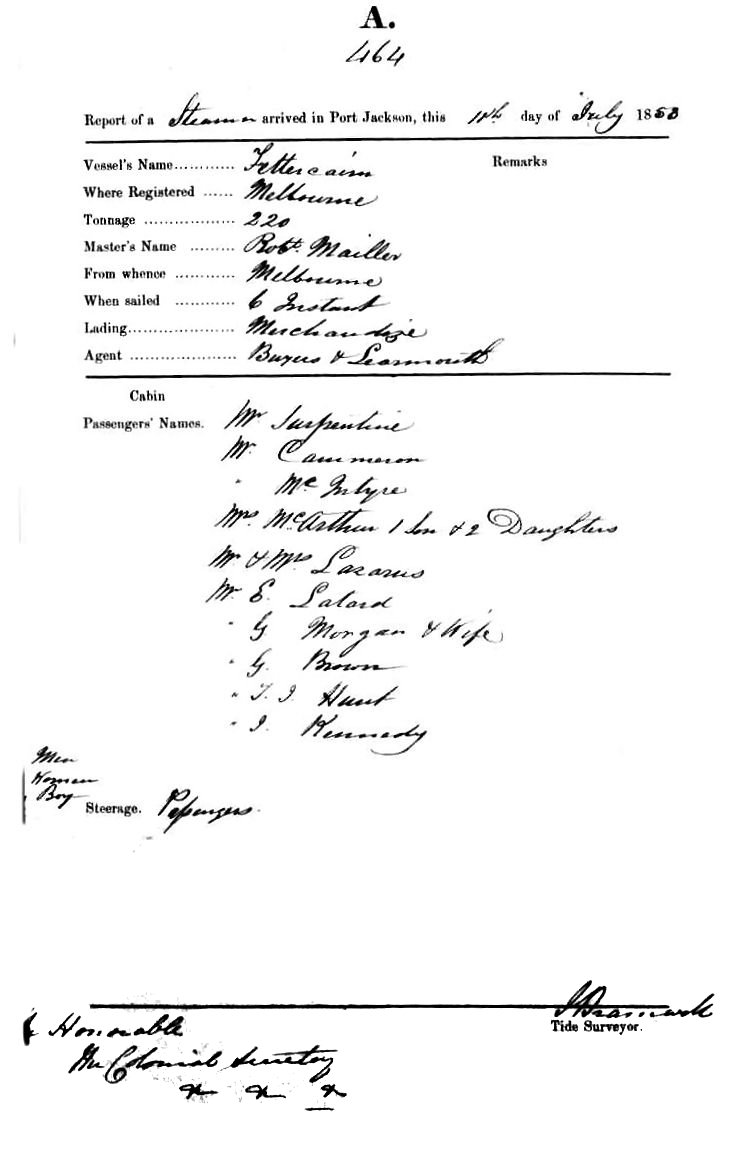 A.
464
Report of a Steamer arrived in Port Jackson, this 11th day of July 1853
Vessel's Name............ Fettercairn
Remarks
Where Registered ...... Melbourne
Tonnage .................. 220
Master's Name ......... Robt. Mailler
From whence ............ Melbourne
When sailed ............ 6 Instant
Lading..................... Merchandize
Agent ..................... Buyers & Learmouth
Cabin
Passengers' Names. Mr Surpentine
Mr Cammeron
" Mc Intyre
Mrs McArthur 1 Son & 2 Daughters
Mr & Mrs Lazarus
Mr E. Lalard
" G Morgan & Wife
" G. Brown
" T. J. Hunt
" J. Kennedy
Men
Women
Boy
Steerage. Passengers.
Tide Surveyor.
Honorable
The Colonial Secretary